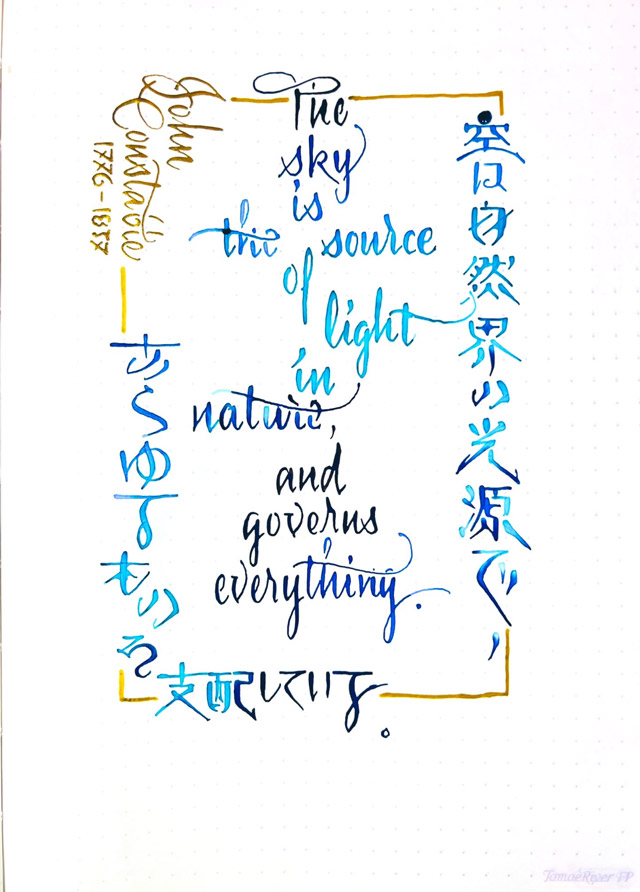 The
sky
is
the source
of
light
in
nature,
and
governs
everything.
John
Constable
1776-1837
空は自然界の光源で,
あらゆるものを
支配している。
TomoeRiver FP